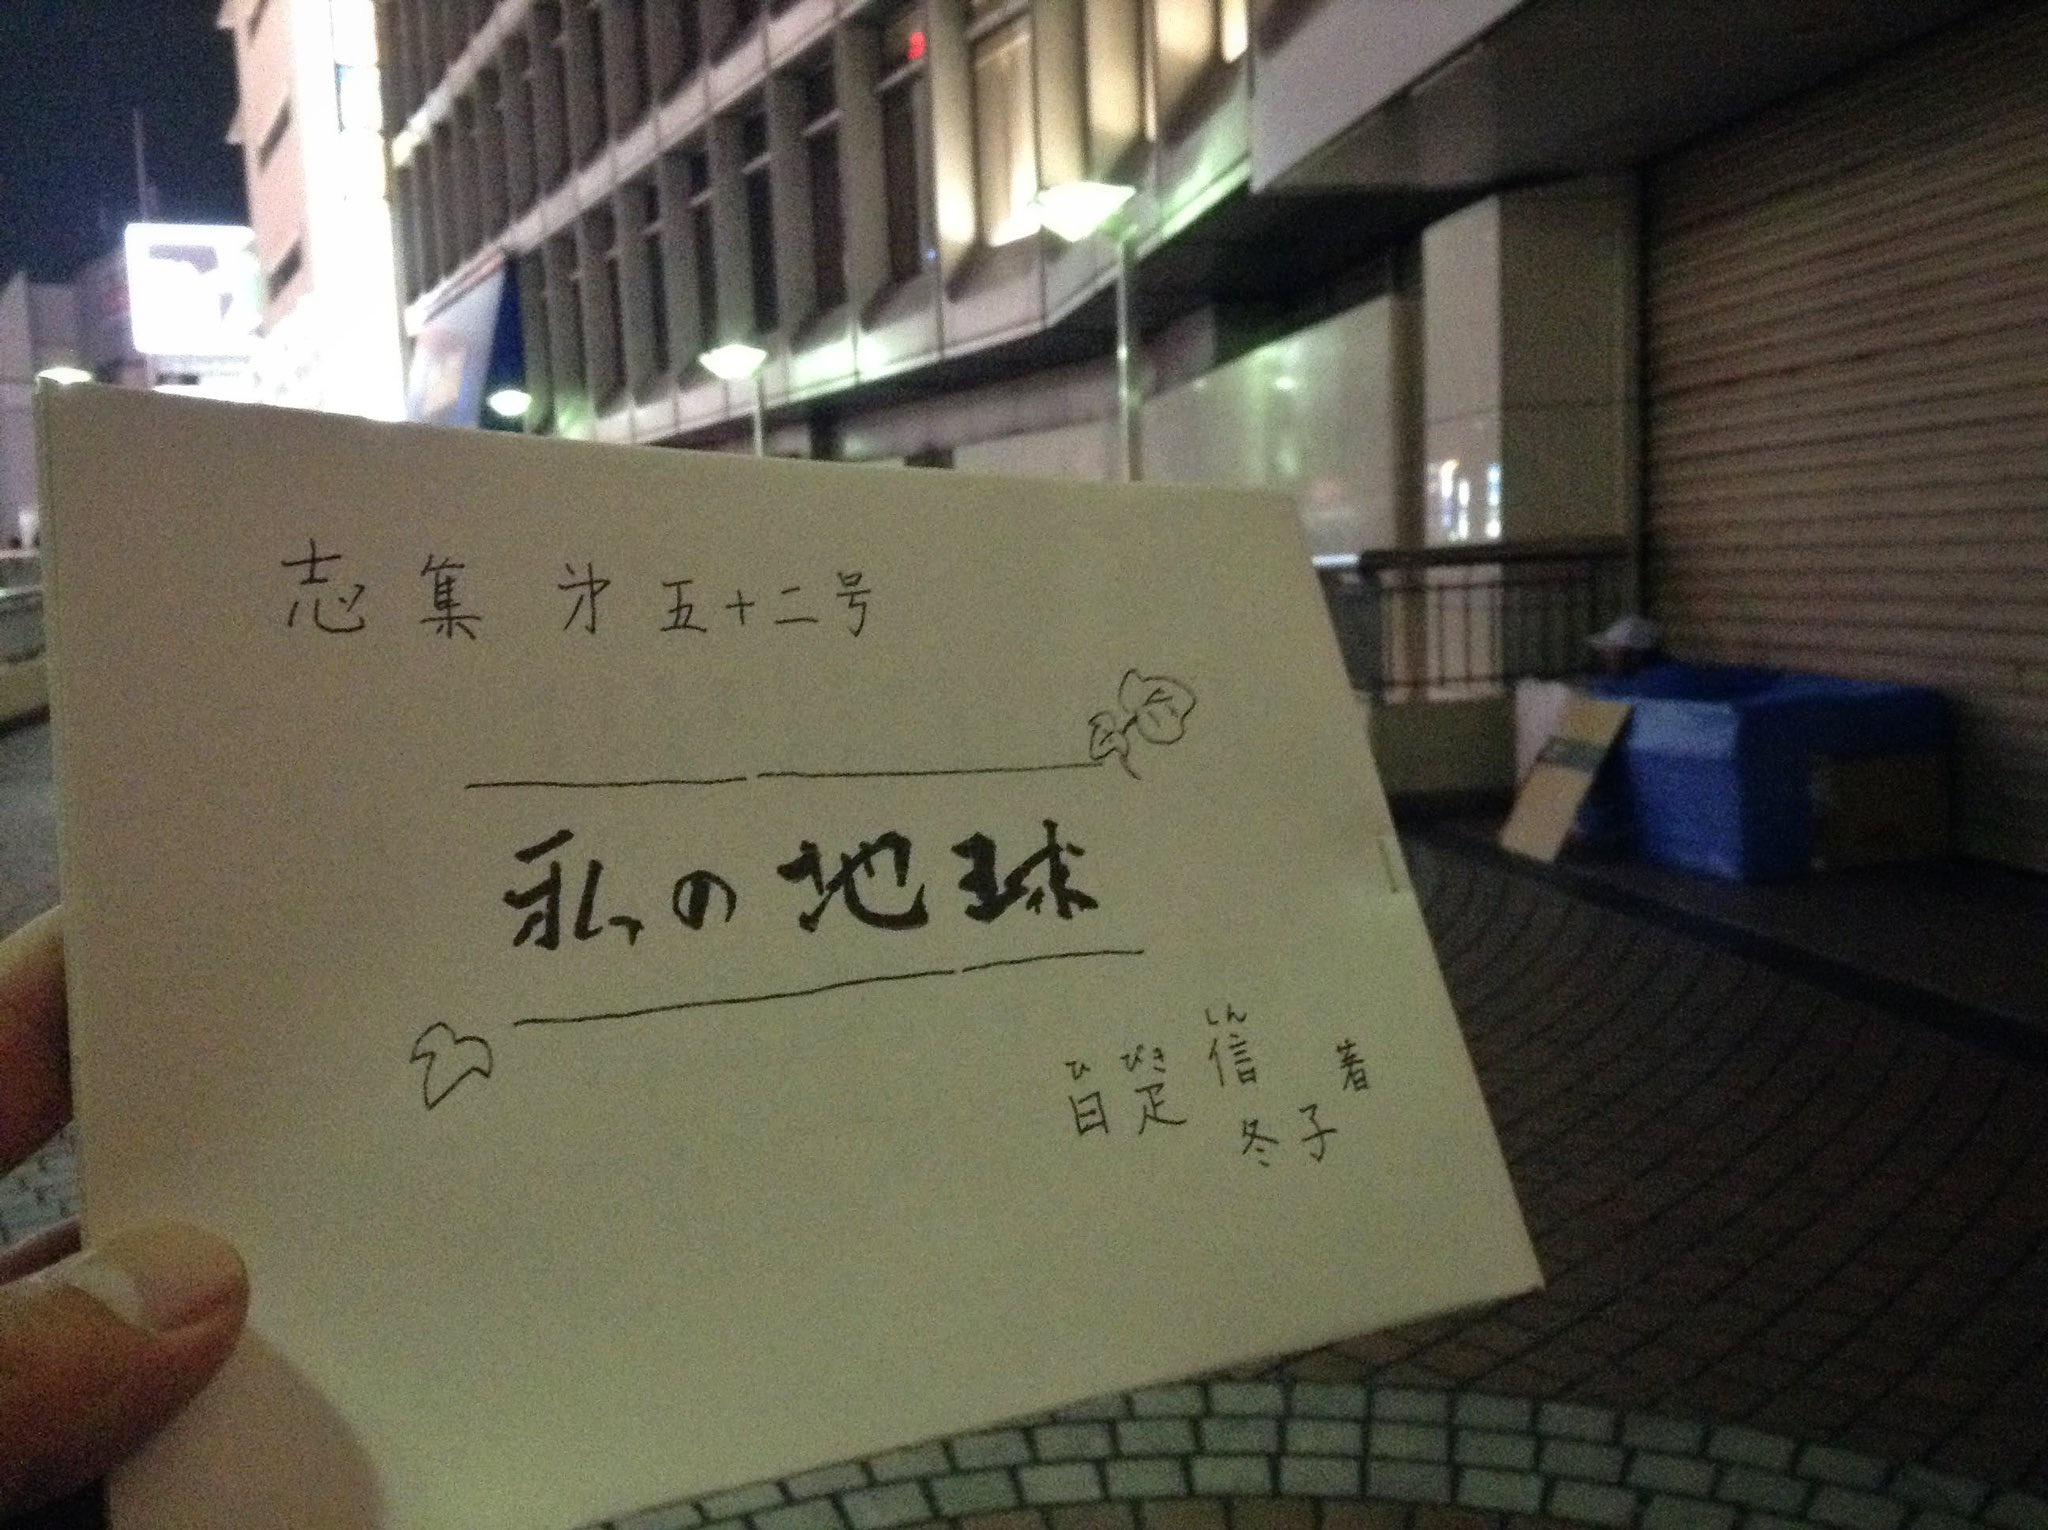 志集 第五十二号
私の地球
ひ びき しん
日疋 信
冬子 著